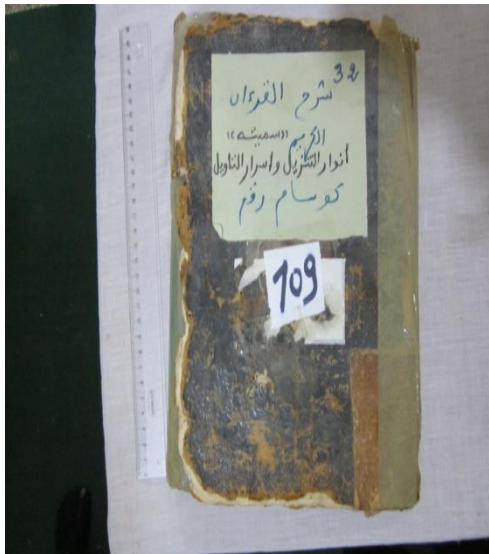 32
شرح القرءان
الكريم ((سميته))
أنوار التنزيل وأسرار التأويل
109